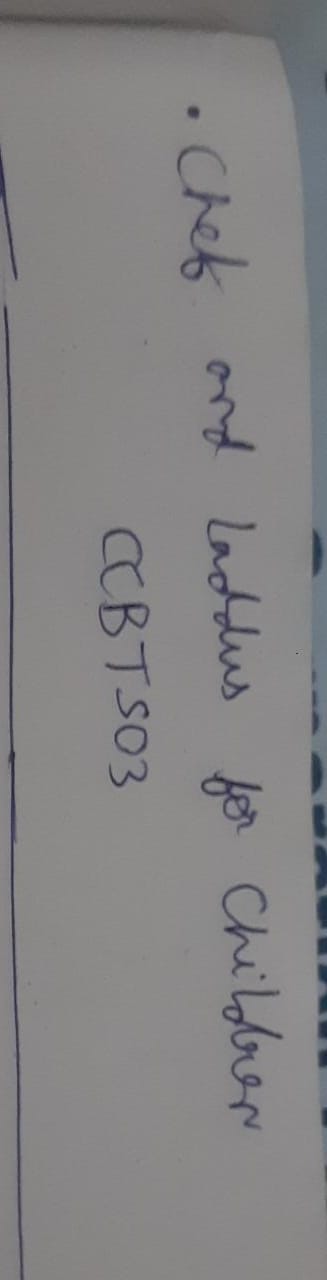 . Chef and Laddus for Children
CCBTS03